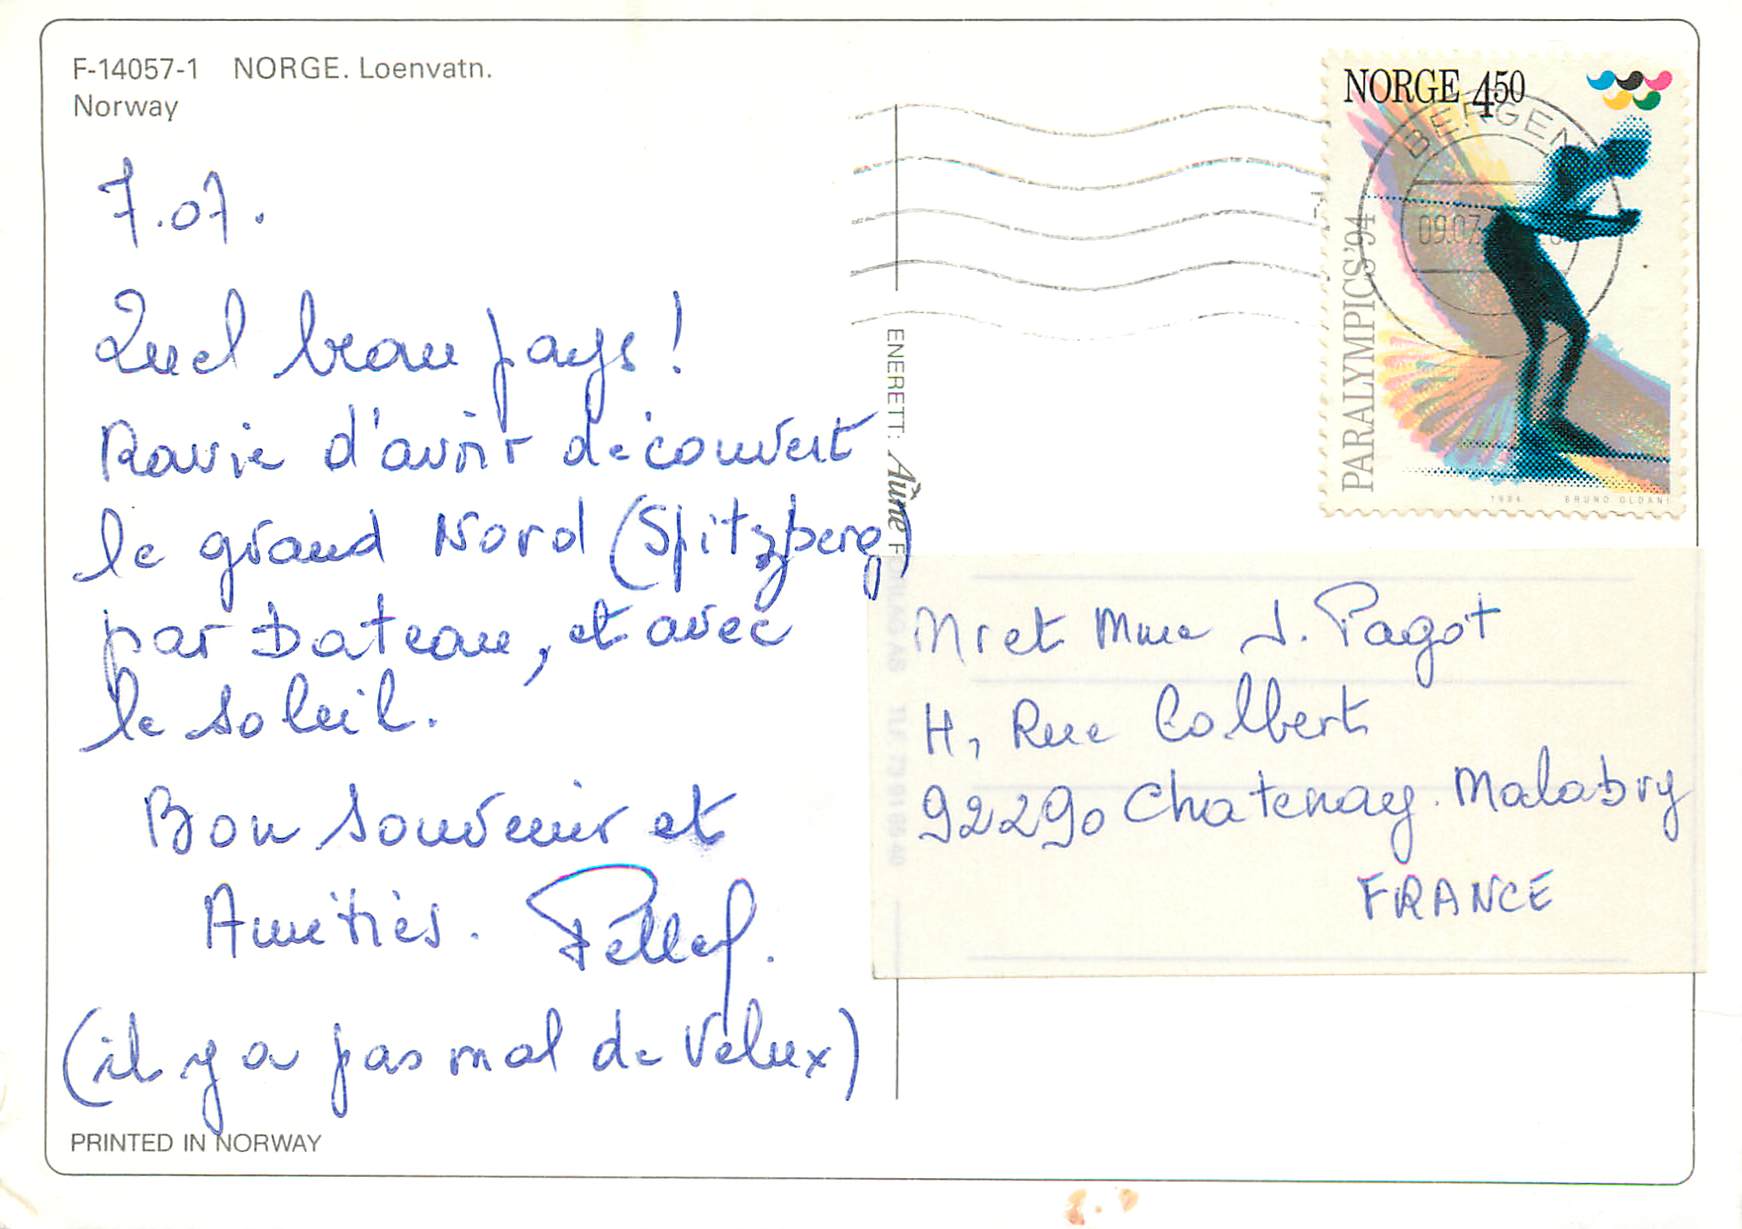 F-14057-1 NORGE. Loenvatn.
Norway
7.07.
Quel beau pays !
Ravie d'avoir découvert
le grand Nord (Spitzberg)
par bateau, et avec
le soleil.
Bon souvenir et
Amitiés.
(il y a pas mal de Velux)
PRINTED IN NORWAY
ENERETT: Aune F
NORGE 450
BERGEN
09.07
PARALYMPICS '94
1994 BRUNO OLDANI
Mr et Mme J. Pagot
4, Rue Colbert
92290 Chatenay. Malabry
FRANCE